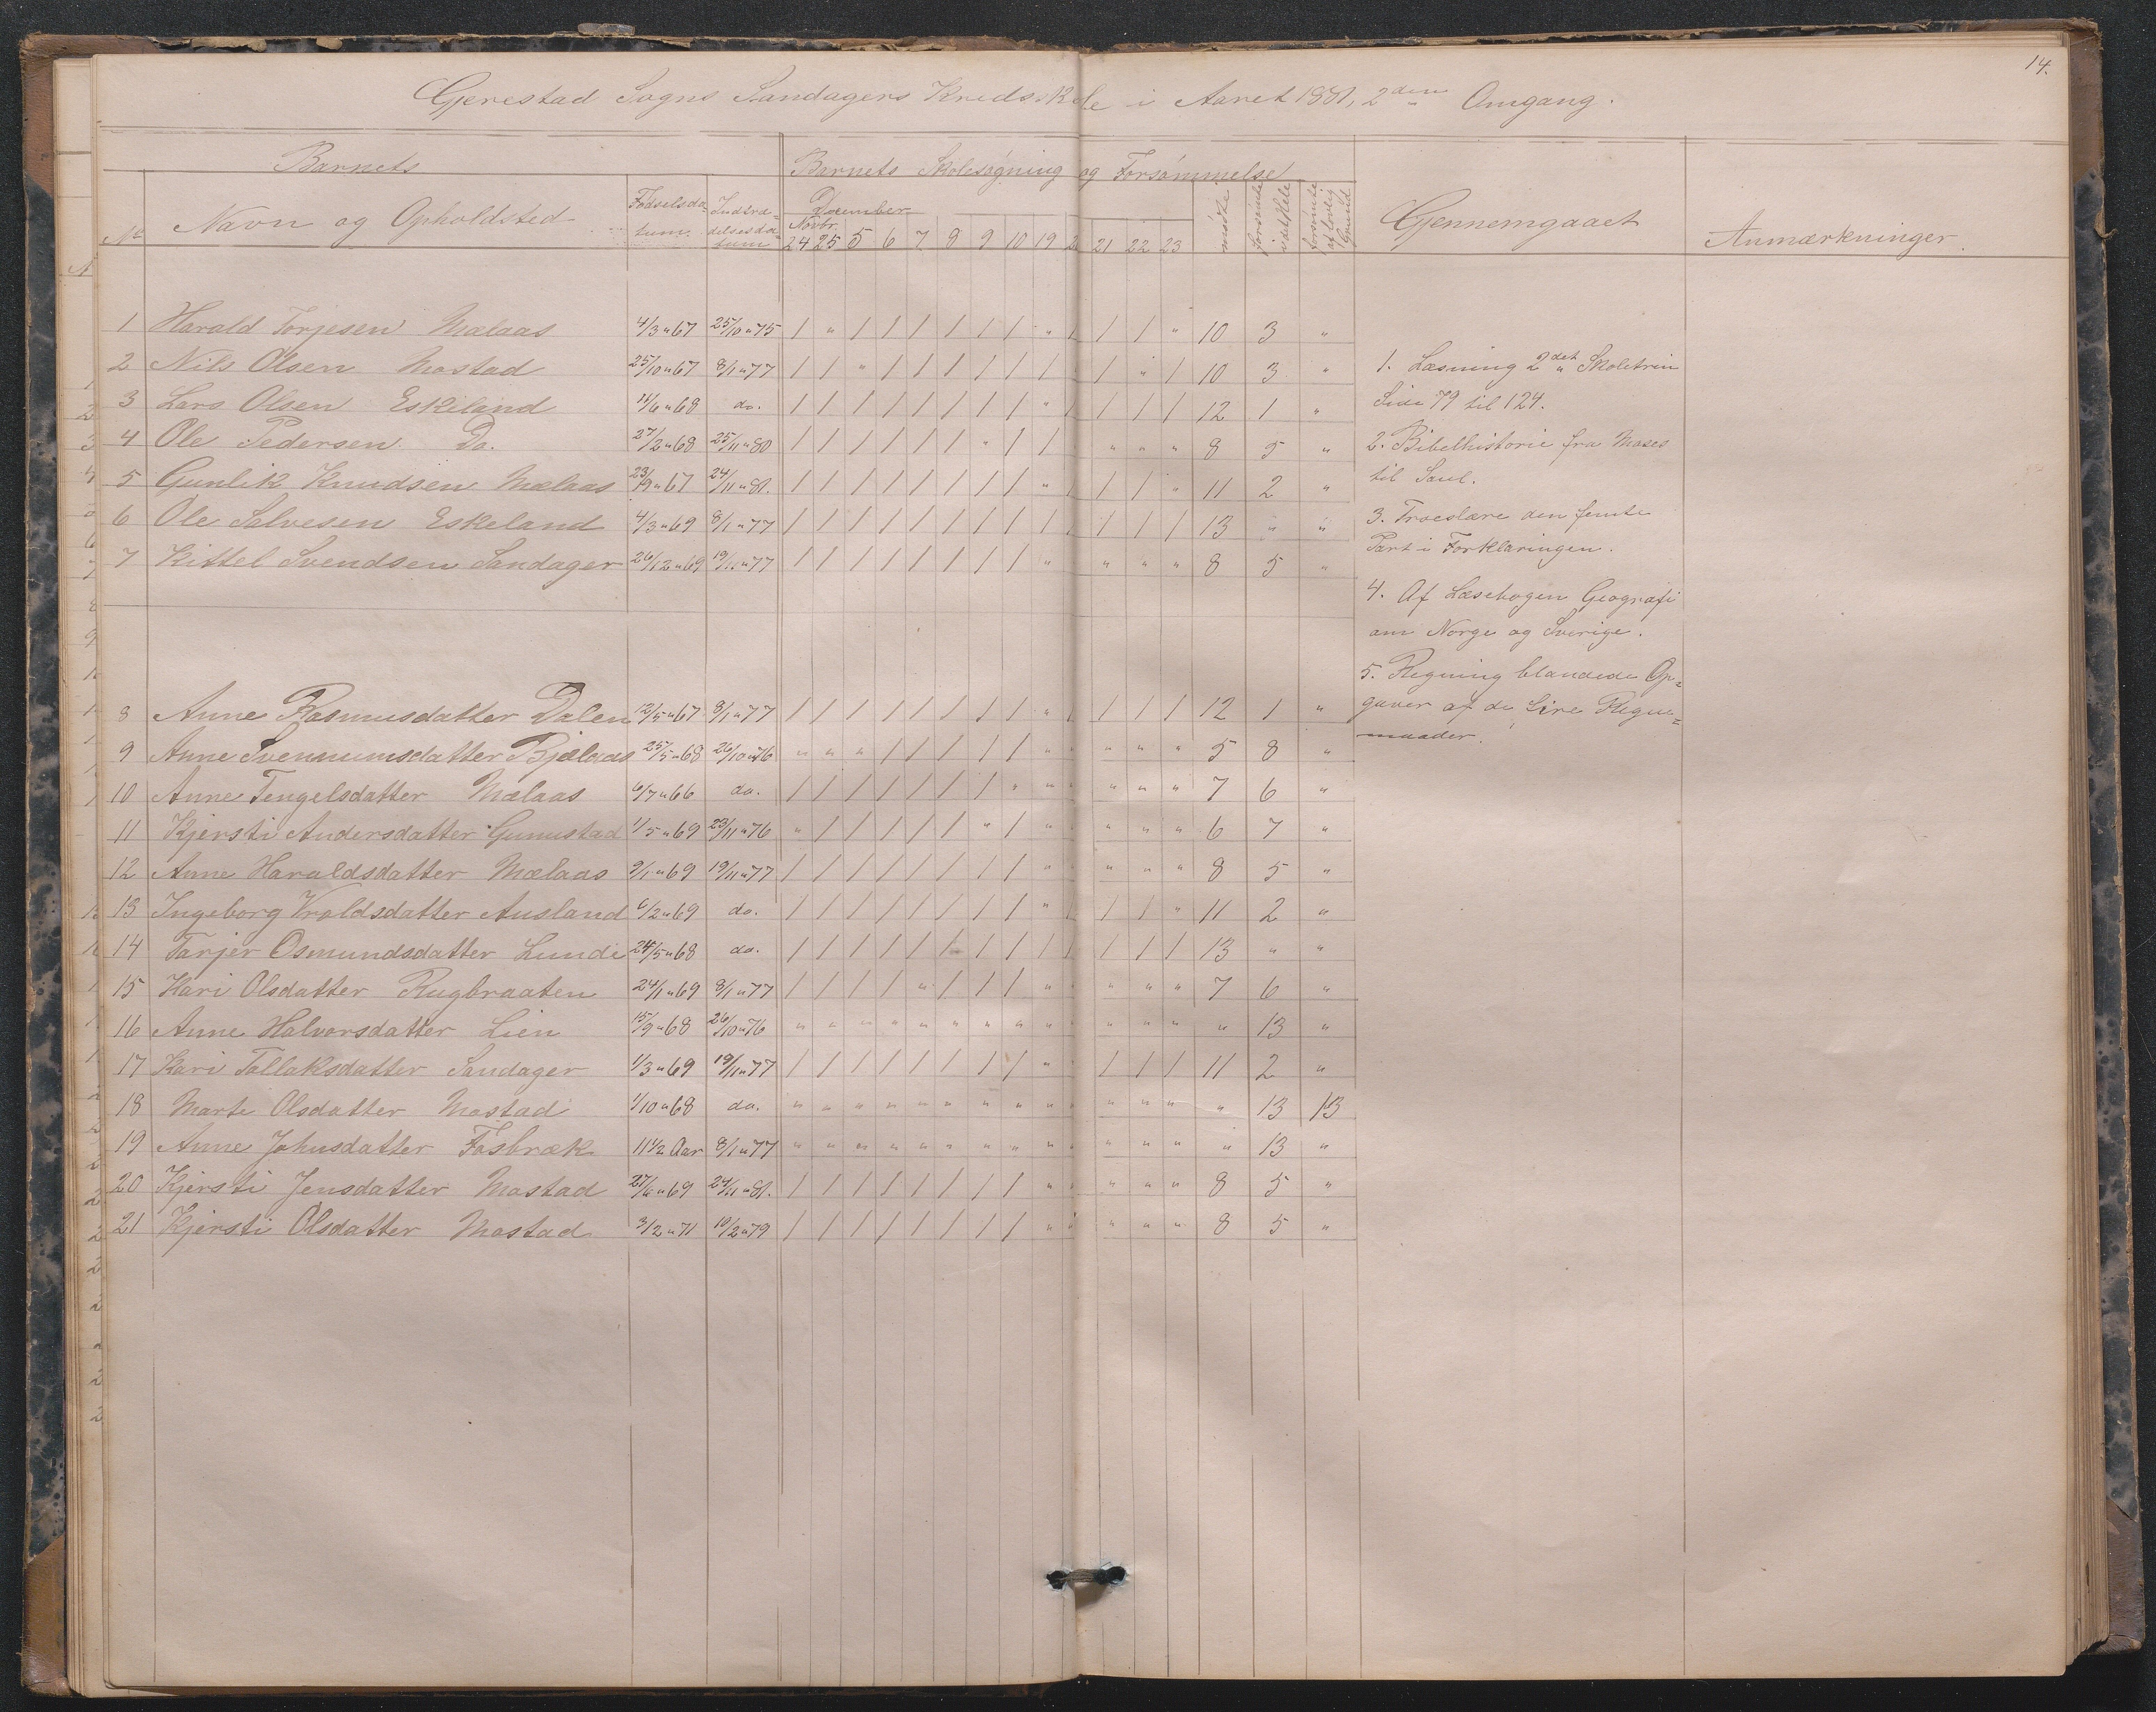 14.
Gjerestad Sogns Sandagers Kredsskole i Aaret 1881, 2den Omgang.
Barnets
Barnets Skolesøgning og Forsømmelse
No Navn og Opholdsted Fødselsdatum. Indtrædelsesdatum
December
Novbr.
24 25 5 6 7 8 9 10 19 2 21 22 23 mødte forsømte i det Hele forsømte af lovlig Grund
Gjennemgaaet
Anmærkninger.
1 Harald Torjesen Mælaas 4/3 " 67 25/10 " 75 / " / / / / / / " / / / " 10 3 "
2 Nils Olsen Mostad 25/10 " 67 8/1 " 77 / / " / / / / / / / " / 10 3 "
3 Lars Olsen Eskeland 11/6 " 68 do. / / / / / / / / " / / / / 12 1 "
4 Ole Pedersen Do. 27/2 " 68 25/11 " 80 / / / / / / " / / " " " 8 5 "
5 Gunlik Knudsen Mælaas 23/9 " 67 24/11 " 81. / / / / / / / / " / / / " 11 2 "
6 Ole Salvesen Eskeland 4/3 " 69 8/1 " 77 / / / / / / / / / / / / / 13 " "
7 Kittel Svendsen Sandager 26/12 " 69 19/11 " 77 / / / / / / / / " " " " 8 5 "
8 Anne Rasmusdatter Dalen 12/5 " 67 8/1 " 77 / / / / / / / / " / / / / 12 1 "
9 Anne Svennumsdatter Bjelaas 25/5 " 68 26/10 " 76 " " " / / / / / " " " " 5 8 "
10 Anne Tengelsdatter Mælaas 6/7 " 66 do. / / / / / / / " " " " " 7 6 "
11 Kjersti Andersdatter Gunustad 1/5 " 69 23/11 " 76 " / / / / / " / " " " " 6 7 "
12 Anne Haraldsdatter Mælaas 9/1 " 69 19/11 " 77 / / / / / / / / " " " " 8 5 "
13 Ingeborg Vroldsdatter Ausland 6/2 " 69 do. / / / / / / / / " / / / " 11 2 "
14 Tarjer Osmundsdatter Lunde 24/5 " 68 do. / / / / / / / / / / / / / 13 " "
15 Kari Olsdatter Rugbraaten 24/1 " 69 8/1 " 77 / / / / " / / / " " " " 7 6 "
16 Anne Halvorsdatter Lien 15/9 " 68 26/10 " 76 " " " " " " " " " " " " " 13 "
17 Kari Tallaksdatter Sandager 1/3 " 69 19/11 " 77 / / / / / / / / " / / / 11 2 "
18 Marte Olsdatter Mostad 1/10 " 68 do. " " " " " " " " " " " " " 13 13
19 Anne Johnsdatter Fosbræk 11 1/2 Aar 8/1 " 77 " " " " " " " " " " " " " 13 "
20 Kjersti Jensdatter Mostad 27/6 " 69 24/11 " 81. / / / / / / / / " " " " 8 5 "
21 Kjersti Olsdatter Mostad 3/2 " 71 10/2 " 79 / / / / / / / / " " " " 8 5 "
1. Læsning 2det Skoletrin
Side 79 til 124.
2. Bibelhistorie fra Moses
til Saul.
3. Troeslære den femte
Part i Forklaringen.
4. Af Læsebogen Geografi
om Norge og Sverige.
5. Regning blandede Op=
gaver af de fire Regne=
maader.